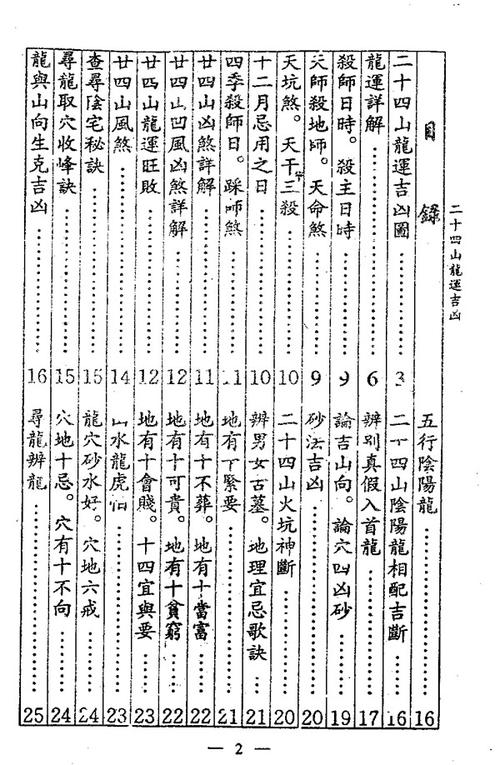 二十四山龍運吉凶
目錄
二十四山龍運吉凶圖……3
龍運詳解……6
殺師日時。殺主日時……9
天師殺地師。天命煞……9
天坑煞。天干三殺……10
十二月忌用之日……10
四季殺師日。踩師煞……11
廿四山凶煞詳解……11
廿四山凹風凶煞詳解……12
廿四山龍運旺敗……12
廿四山風煞……14
查尋陰宅秘訣……15
尋龍取穴收峰訣……15
龍與山向生克吉凶……16
五行陰陽龍……16
二十四山陰陽龍相配吉斷……16
辨别真假入首龍……17
論吉山向。論穴凶砂……19
砂法吉凶……20
二十四山火坑神斷……20
辨男女古墓。地理宜忌歌訣……21
地有十緊要……21
地有十不葬。地有十當富……22
地有十可貴。地有十貧窮……22
地有十會賤。十四宜與要……23
山水龍虎怕……23
龍穴砂水好。穴地六戒……24
穴地十忌。穴有十不向……24
尋龍辨龍……25
— 2 —